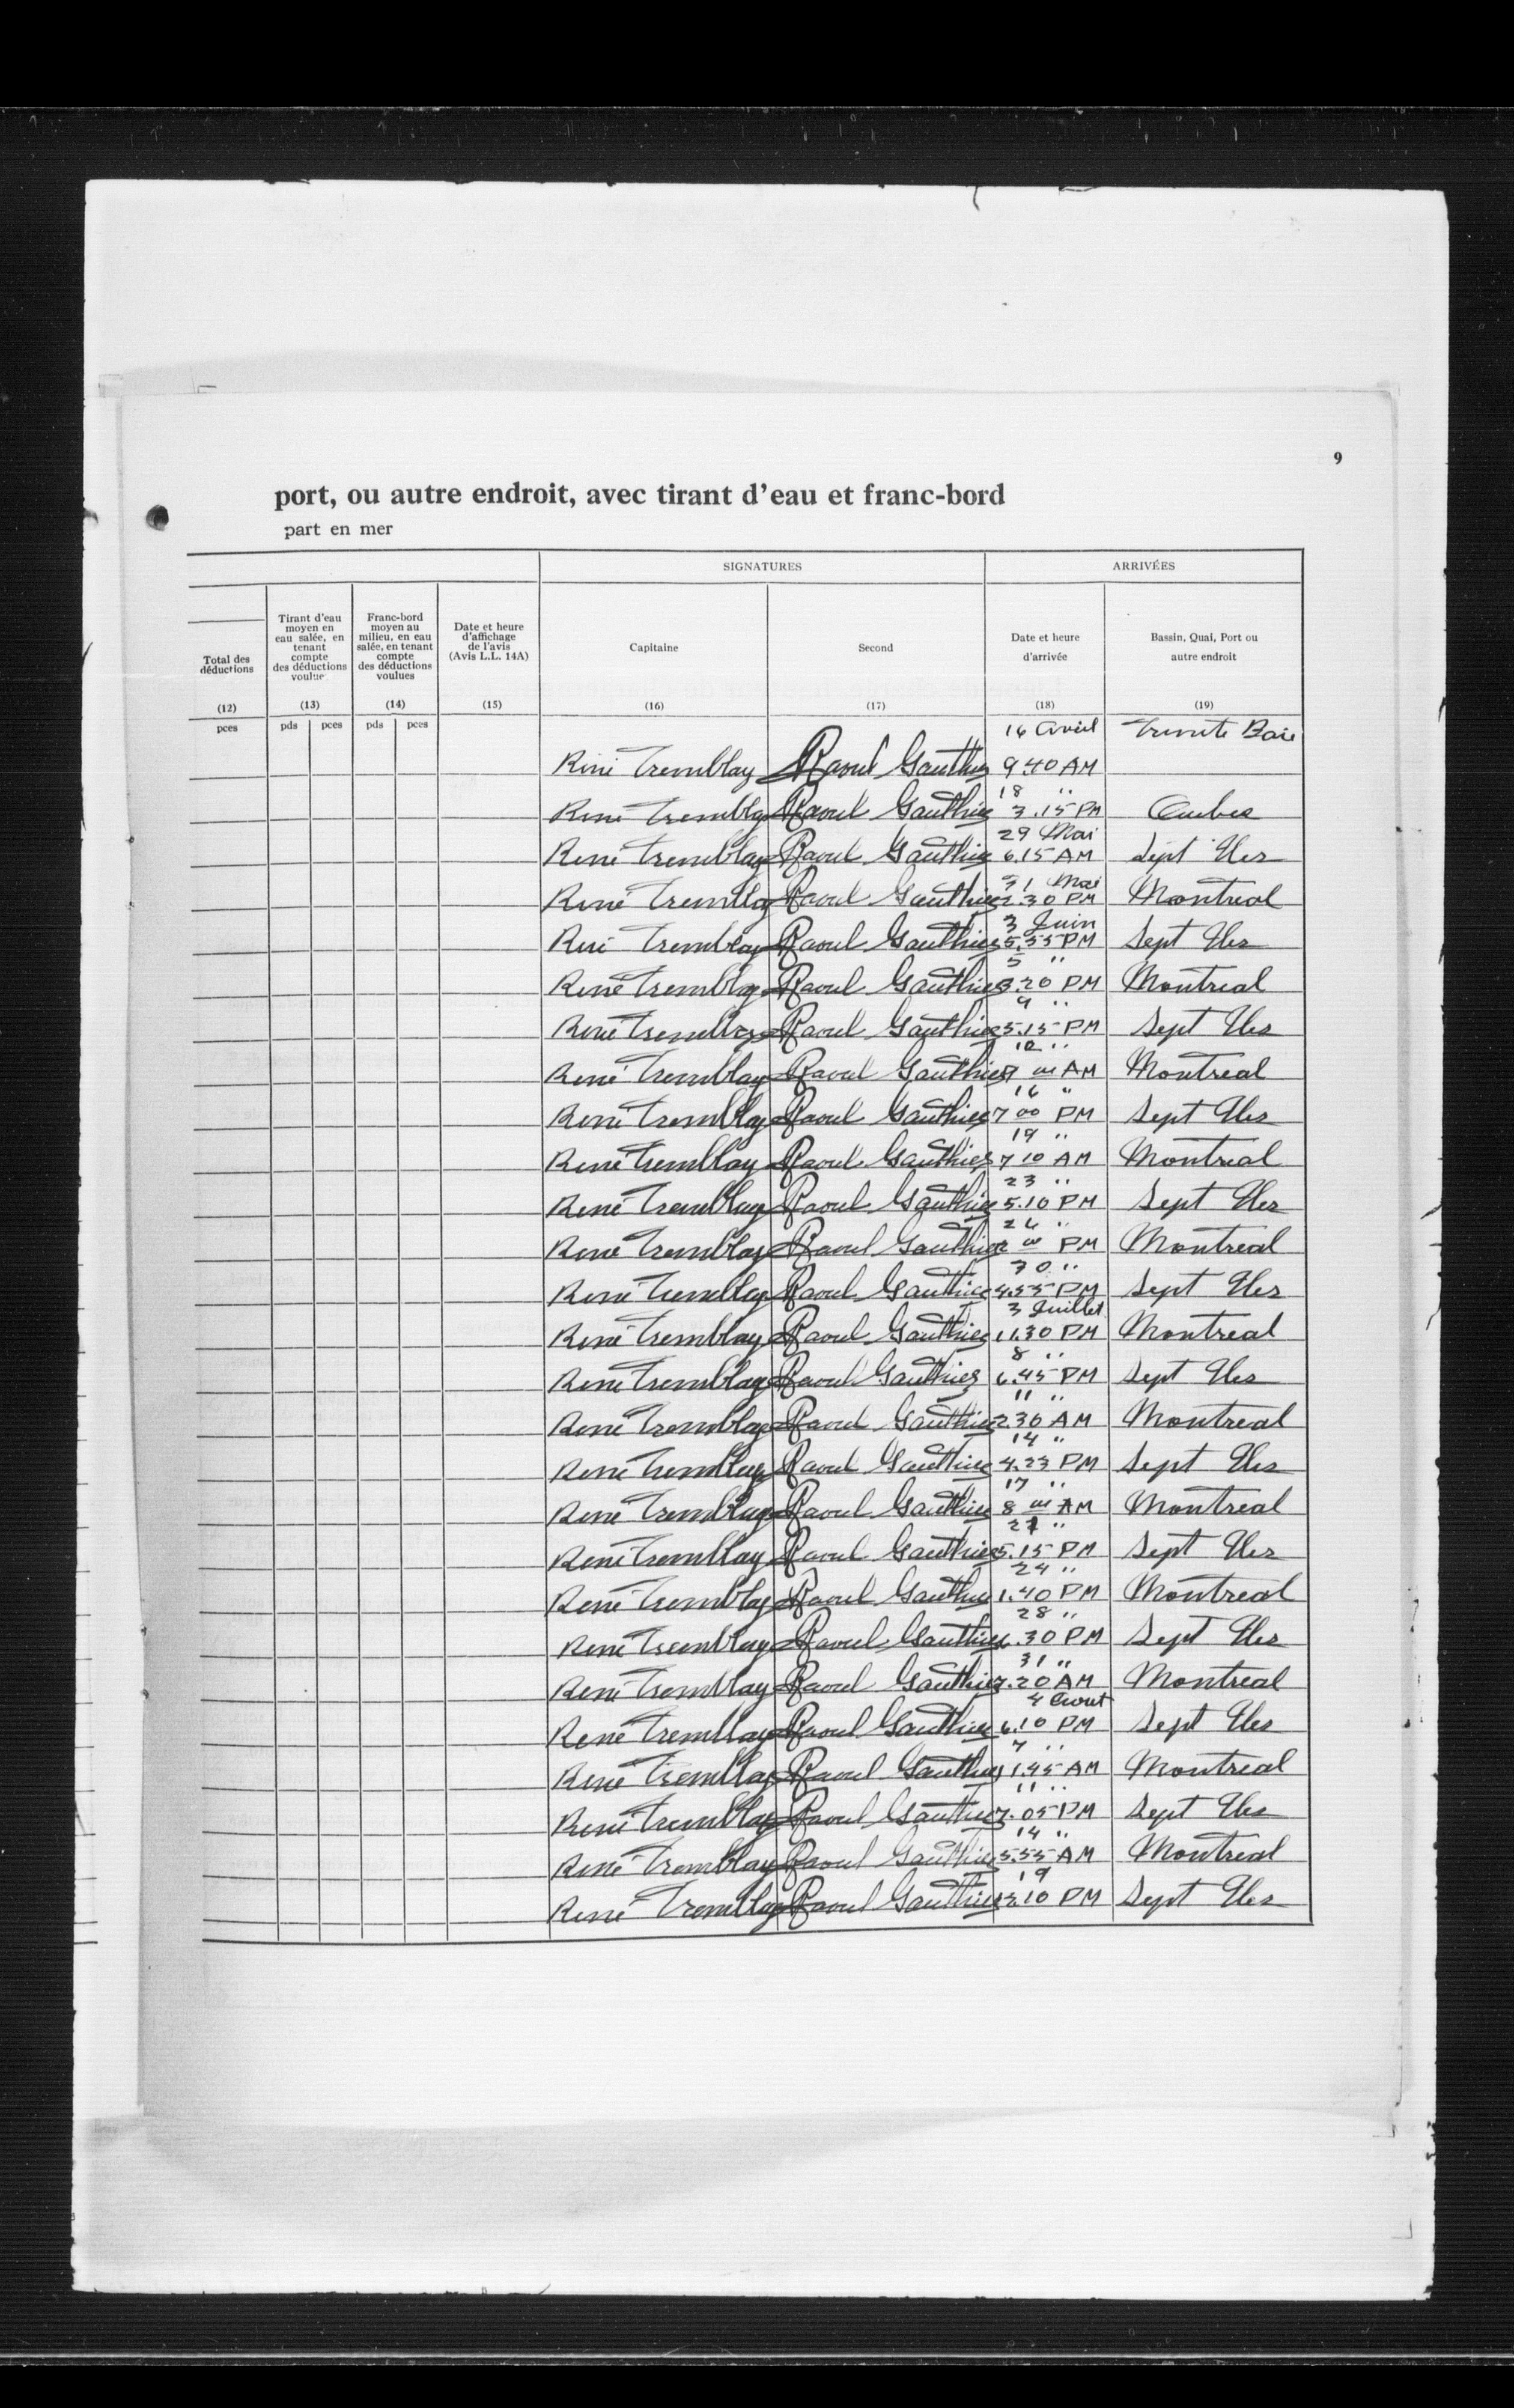 9
port, ou autre endroit, avec tirant d'eau et franc-bord
part en mer
SIGNATURES ARRIVÉES
Total des déductions
Tirant d'eau moyen en eau salée, en tenant compte des déductions voulue
Franc-bord moyen au milieu, en eau salée, en tenant compte des déductions voulues
Date et heure d'affichage de l'avis (Avis L.L. 14A)
Capitaine
Second
Date et heure d'arrivée
Bassin, Quai, Port ou autre endroit
(12) (13) (14) (15) (16) (17) (18) (19)
pces pds pces pds pces
16 Avril Trinité Baie
René Tremblay Raoul Gauthier 9.40 AM
18 "
René Tremblay Raoul Gauthier 3.15 PM Quebec
29 Mai
René Tremblay Raoul Gauthier 6.15 AM Sept Iles
31 Mai
René Tremblay Raoul Gauthier 2.30 PM Montreal
3 Juin
René Tremblay Raoul Gauthier 5.55 PM Sept Iles
5 "
René Tremblay Raoul Gauthier 3.20 PM Montreal
9 "
René Tremblay Raoul Gauthier 5.15 PM Sept Iles
12 "
René Tremblay Raoul Gauthier 00 AM Montreal
16 "
René Tremblay Raoul Gauthier 7 00 PM Sept Iles
19 "
René Tremblay Raoul Gauthier 7 10 AM Montreal
23 "
René Tremblay Raoul Gauthier 5.10 PM Sept Iles
26 "
René Tremblay Raoul Gauthier 00 PM Montreal
30 "
René Tremblay Raoul Gauthier 4.55 PM Sept Iles
3 Juillet
René Tremblay Raoul Gauthier 11.30 PM Montreal
8 "
René Tremblay Raoul Gauthier 6.45 PM Sept Iles
11 "
René Tremblay Raoul Gauthier 2.30 AM Montreal
14 "
René Tremblay Raoul Gauthier 4.33 PM Sept Iles
17 "
René Tremblay Raoul Gauthier 8 00 AM Montreal
21 "
René Tremblay Raoul Gauthier 5.15 PM Sept Iles
24 "
René Tremblay Raoul Gauthier 1.40 PM Montreal
28 "
René Tremblay Raoul Gauthier 6.30 PM Sept Iles
31 "
René Tremblay Raoul Gauthier 7.20 AM Montreal
4 Aout
René Tremblay Raoul Gauthier 6.10 PM Sept Iles
7 "
René Tremblay Raoul Gauthier 1.45 AM Montreal
11 "
René Tremblay Raoul Gauthier 7.05 PM Sept Iles
14 "
René Tremblay Raoul Gauthier 5.55 AM Montreal
19
René Tremblay Raoul Gauthier 3.10 PM Sept Iles